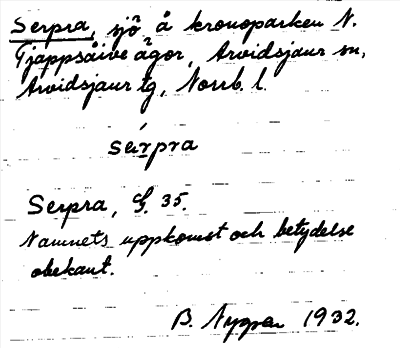 Serpra, sjö å kronoparken N.
Tjappsåive ägor, Arvidsjaur sn,
Arvidsjaur tg, Norrb. l.
sérpra
Serpra, G. 35.
Namnets uppkomst och betydelse
obekant.
B. Nygren 1932.